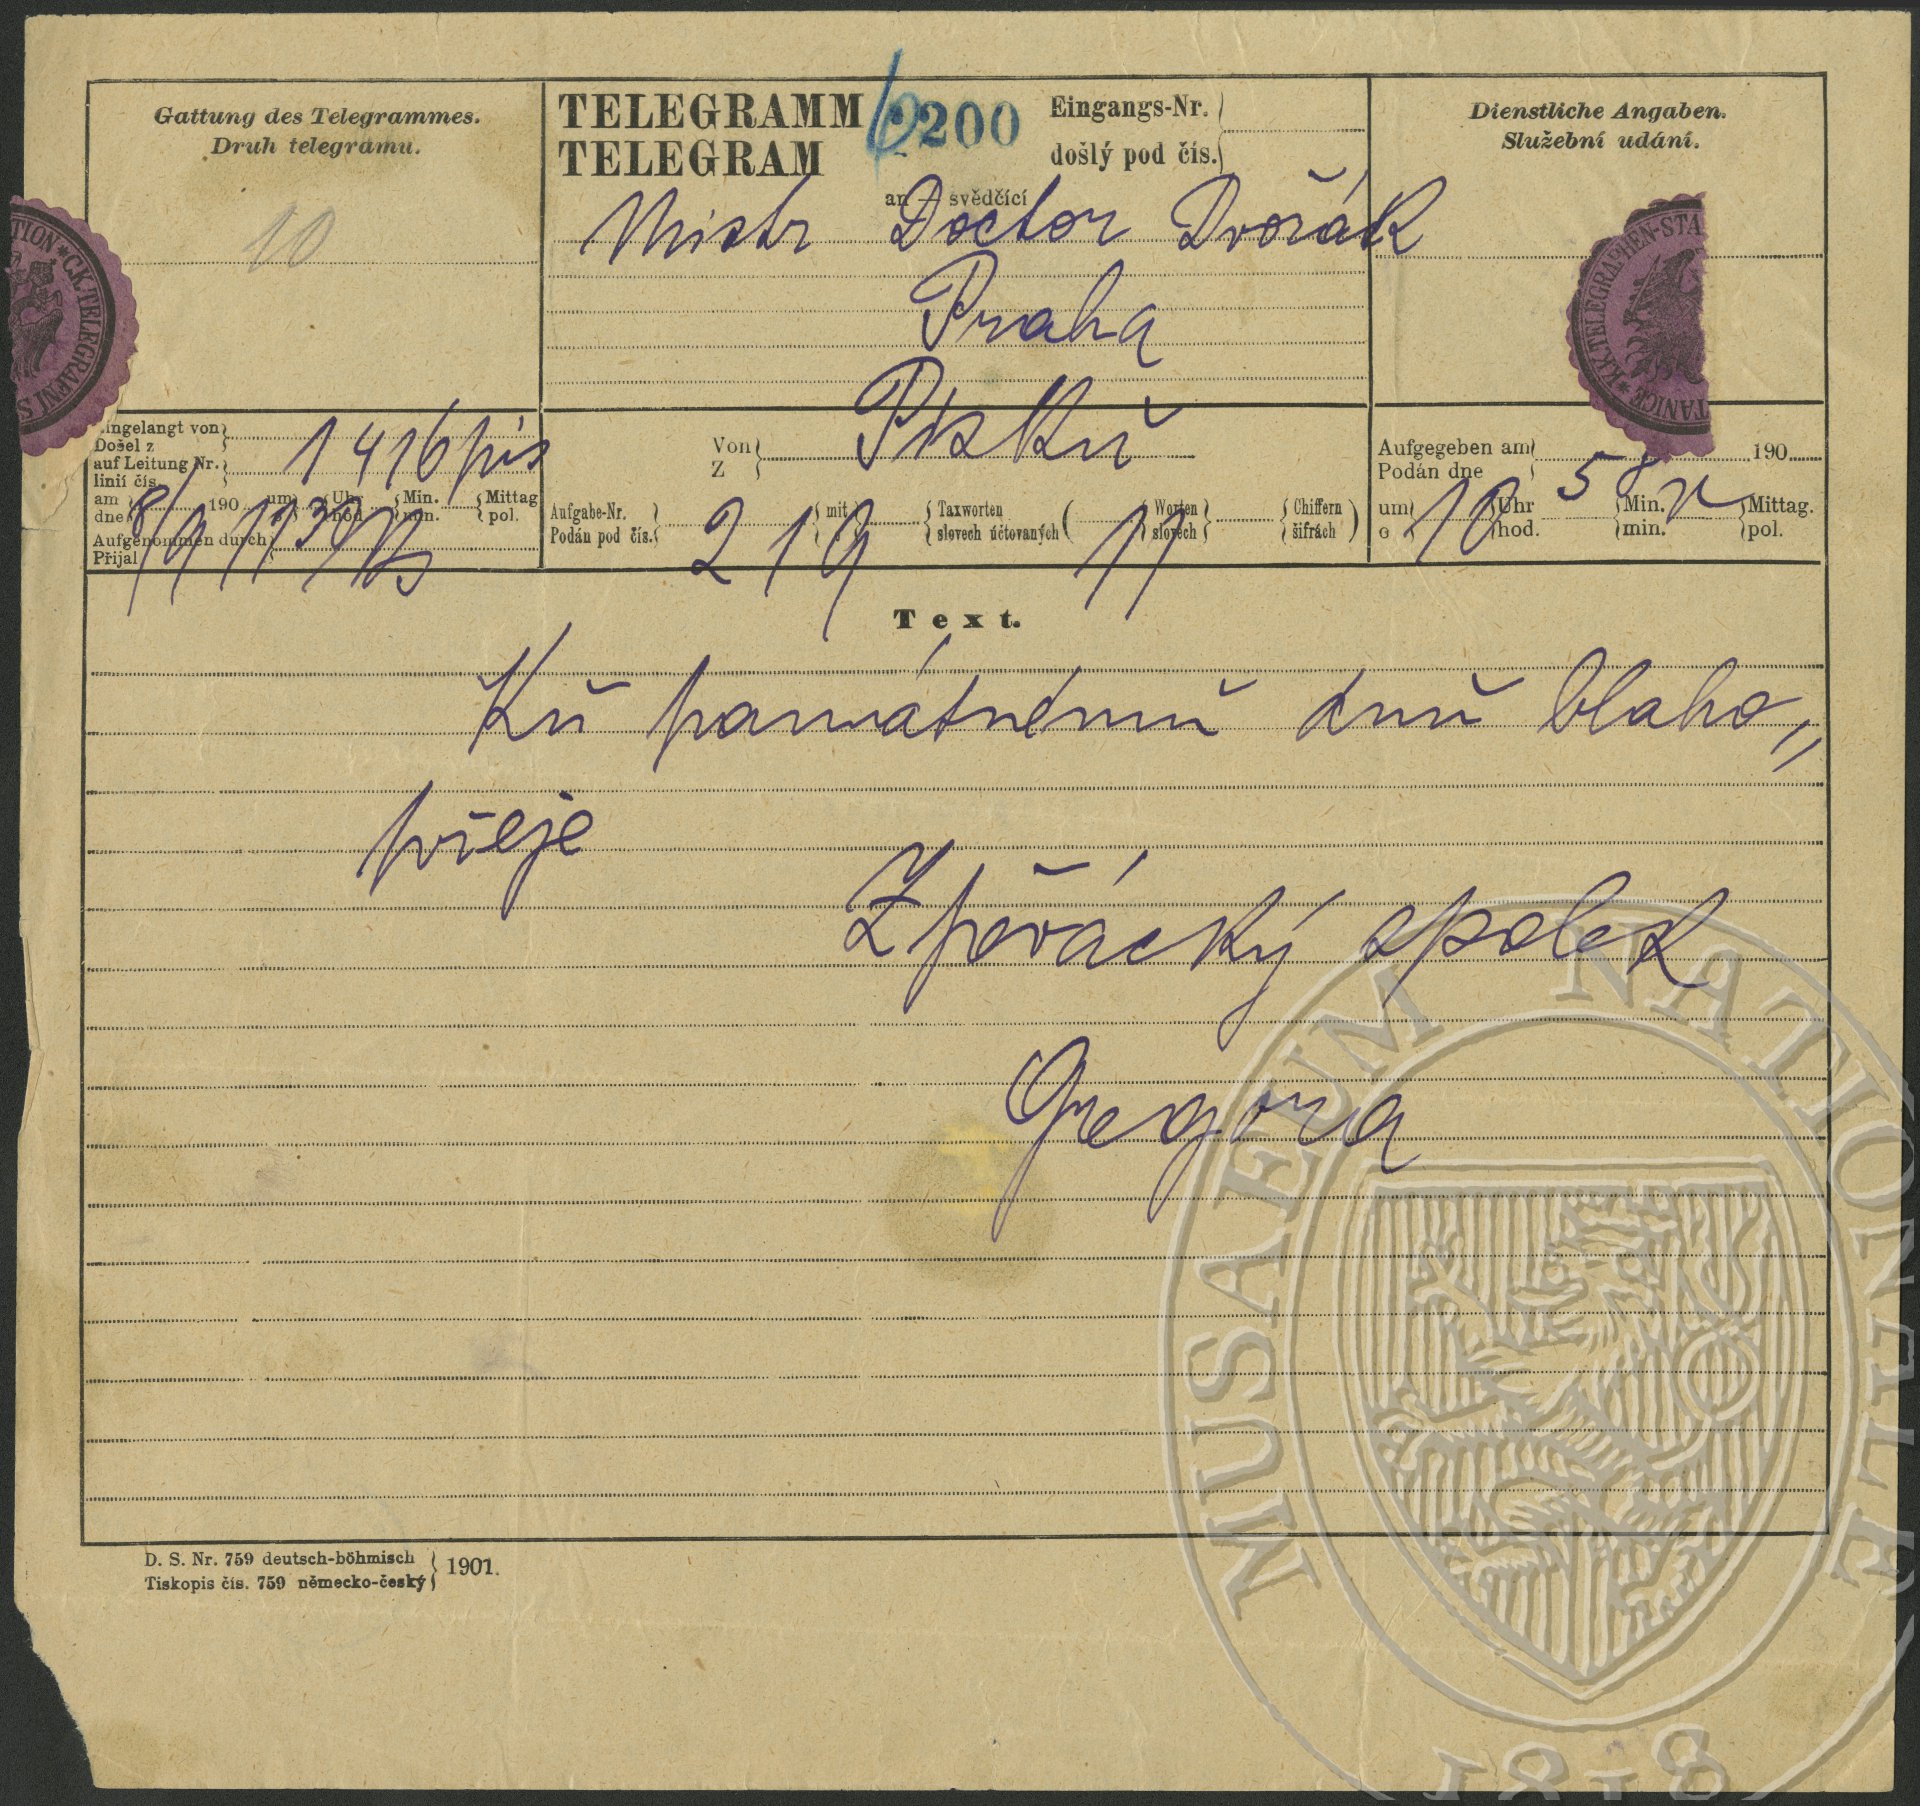 Gattung des Telegrammes.
Druh telegramu.
10
TELEGRAMM
TELEGRAM
200
Eingangs-Nr.
došlý pod čís.
Dienstliche Angaben.
Služební udání.
an — svědčící
Mistr Doctor Dvořák
Praha
TION * C.K. TELEGRAFNÍ S
* K.K. TELEGRAPHEN-STA
TANICE
ingelangt von
Došel z
auf Leitung Nr.
linií čís.
1416 pis
am
dne
8/9
190
um
Uhr
hod.
Min.
min.
Mittag
pol.
Aufgenommen durch
Přijal
Von
Z
Písků
Aufgabe-Nr.
Podán pod čís.
219
mit
s
Taxworten
slovech účtovaných
(
11
Worten
slovech
Chiffern
šifrách
)
Aufgegeben am
Podán dne
190
um
o
10
Uhr
hod.
58
Min.
min.
Mittag.
pol.
Text.
Ků památnémů dnů blaho„
přeje
Zpěvácký spolek
Gregora
D. S. Nr. 759 deutsch-böhmisch
Tiskopis čís. 759 německo-český
1901.
MUSAEUM NATIONALE
1818